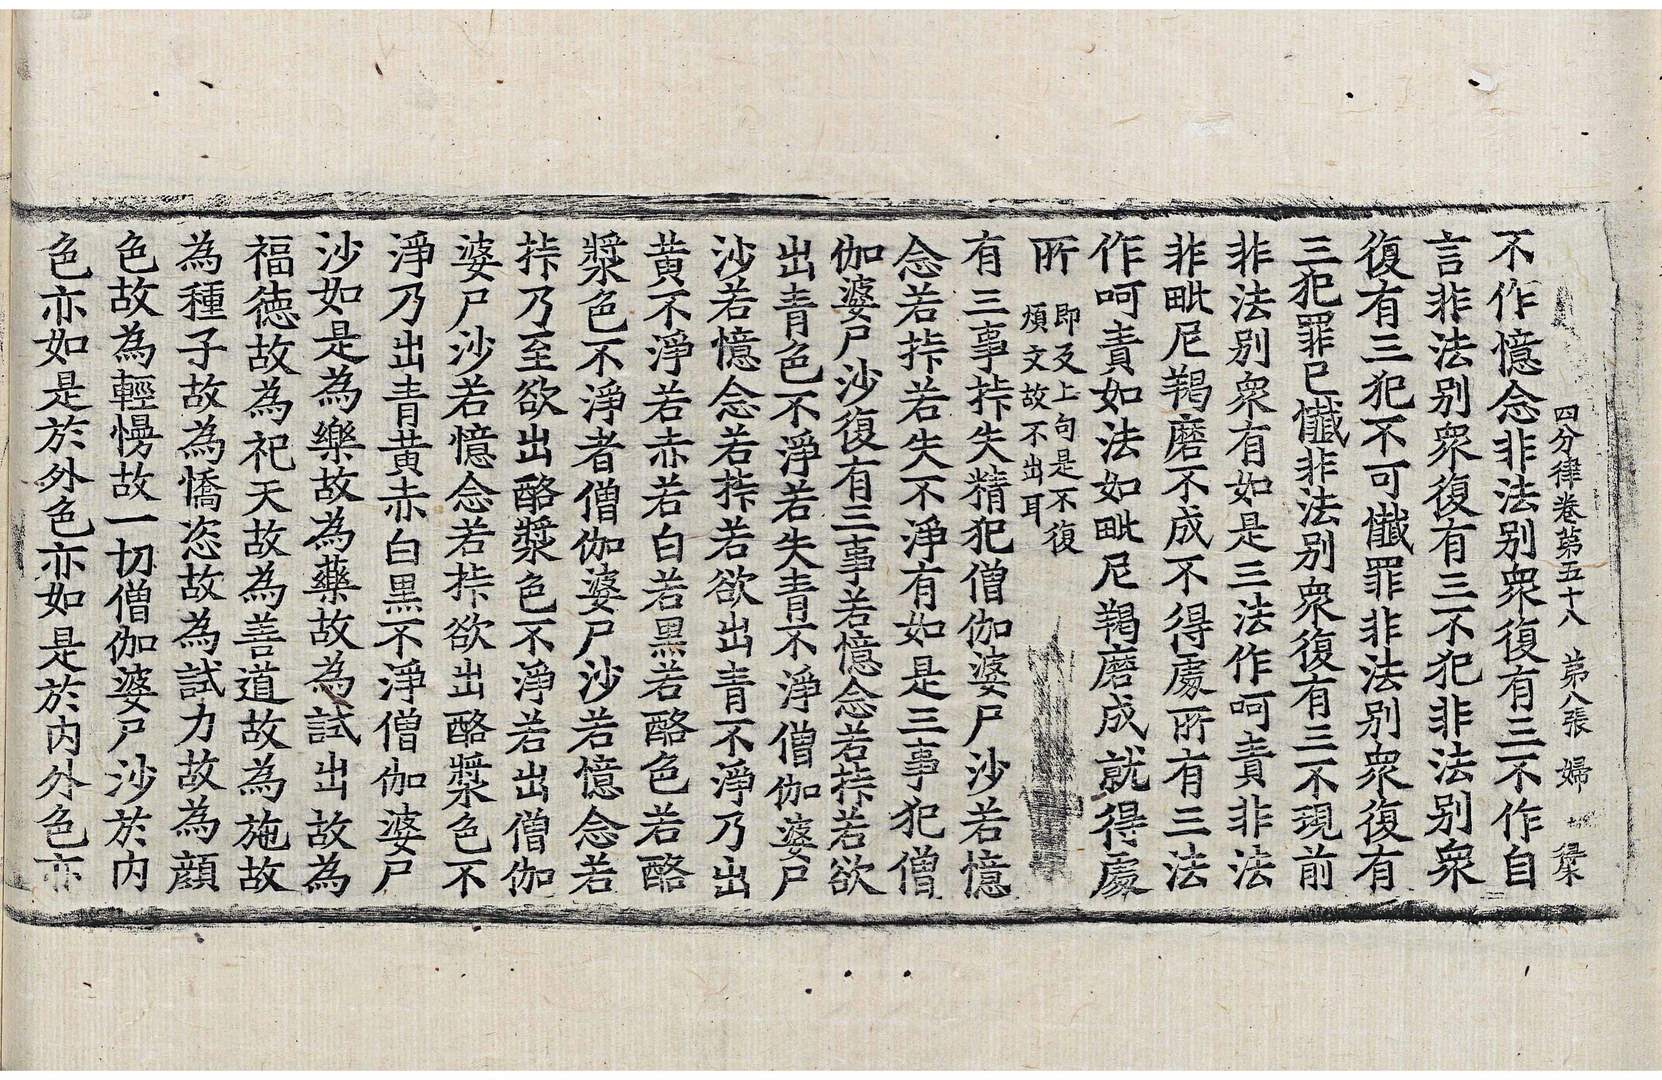 四分律卷第五十八 第八張 婦 梁
不作憶念非法別衆復有三不作自
言非法別衆復有三不犯非法別衆
復有三犯不可懺罪非法別衆復有
三犯罪已懺非法別衆復有三不現前
非法別衆有如是三法作呵責非法
非毗尼羯磨不成不得處所有三法
作呵責如法如毗尼羯磨成就得處
所 即反上句是不復
煩文故不出耳
有三事挊失精犯僧伽婆尸沙若憶
念若挊若失不淨有如是三事犯僧
伽婆尸沙復有三事若憶念若挊若欲
出青色不淨若失青不淨僧伽婆尸
沙若憶念若挊若欲出青不淨乃出
黃不淨若赤若白若黑若酪色若酪
漿色不淨者僧伽婆尸沙若憶念若
挊乃至欲出酪漿色不淨若出僧伽
婆尸沙若憶念若挊欲出酪漿色不
淨乃出青黃赤白黑不淨僧伽婆尸
沙如是為樂故為藥故為試出故為
福德故為祀天故為善道故為施故
為種子故為憍恣故為試力故為顏
色故為輕慢故一切僧伽婆尸沙於內
色亦如是於外色亦如是於內外色亦